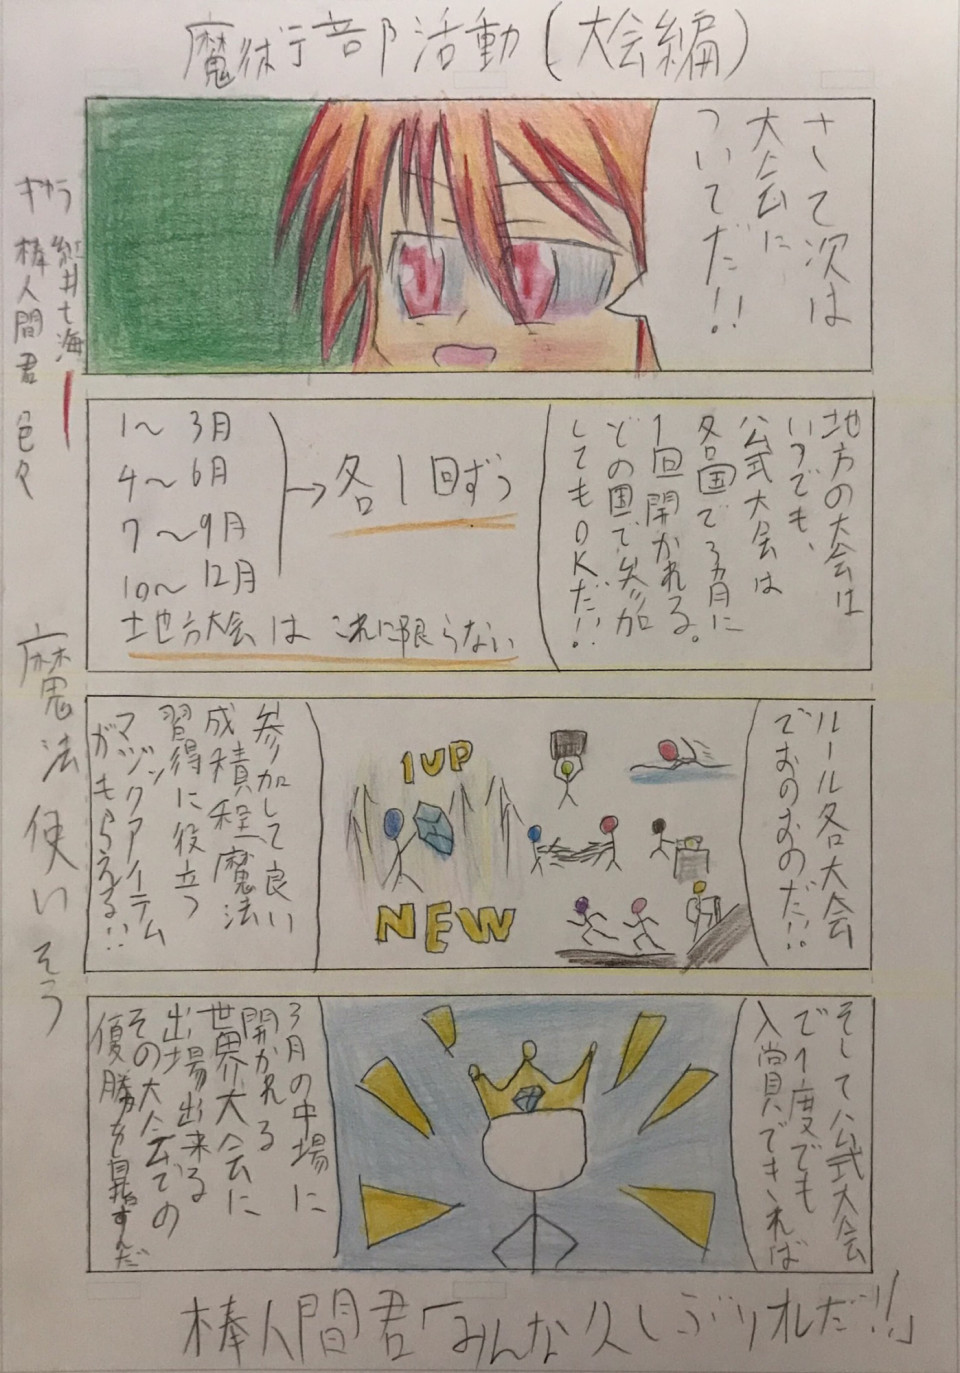 魔術部活動(大会編)
さて次は
大会に
ついてだ!!
キャラ
紅井七海
棒人間君
色々
地方の大会は
いつでも、
公式大会は
各国で3ヵ月に
1回開かれる。
どの国で参加
してもOKだ!!
1〜3月
4〜6月
7〜9月
10〜12月
→各1回ずつ
地方大会はこれに限らない
ルール各大会
でおのおのだ!!
1UP
NEW
参加して良い
成積程魔法
習得に役立つ
マジックアイテム
がもらえる!!
魔法使いそう
そして公式大会
で1度でも
入賞できれば
3月の中場に
開かれる
世界大会に
出場出来る
その大会での
優勝を目指すんだ
棒人間君「みんな久しぶりオレだ!!」